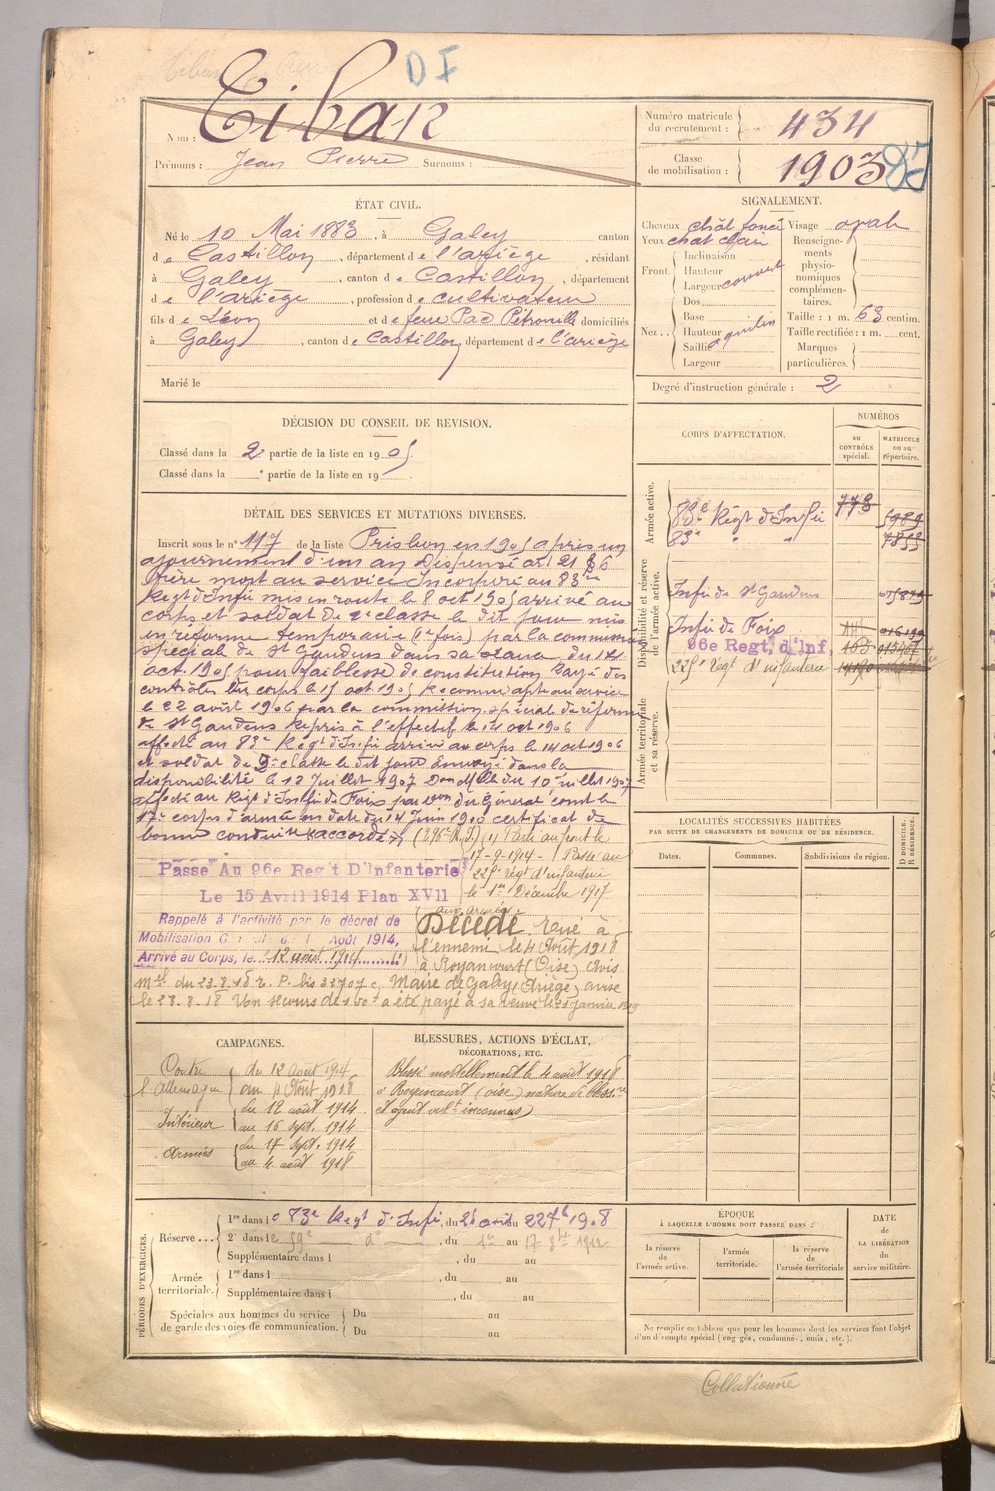 D I
Nom : Tibar
Prénoms : Jean Pierre Surnoms :
Numéro matricule du recrutement : 434
Classe de mobilisation : 1903
ÉTAT CIVIL.
Né le 10 Mai 1883, à Galey canton
de Castillon, département de l'ariège, résidant
à Galey, canton de Castillon, département
de l'ariège, profession de cultivateur
fils de Léon et de feue Pac Pétronille domiciliés
à Galey, canton de Castillon, département de l'ariège
Marié le
SIGNALEMENT.
Cheveux chât foncé Visage oval
Yeux chat clair Renseigne-
ments
physio-
nomiques
complémen-
taires.
Front. Inclinaison
Hauteur
Largeur couvert
Nez.. Dos
Base
Hauteur aquilin
Saillie
Largeur
Taille : 1 m. 63 centim.
Taille rectifiée : 1 m. cent.
Marques
particulières.
Degré d'instruction générale : 2
DÉCISION DU CONSEIL DE REVISION.
Classé dans la 2e partie de la liste en 1905
Classé dans la e partie de la liste en 19 .
CORPS D'AFFECTATION.
NUMÉROS
au
CONTRÔLE
spécial.
MATRICULE
ou au
répertoire.
Armée active.
83e Régt d'Infie 778 5989
83e " " 7855
Disponibilité et réserve
de l'armée active.
Infie de St Gaudens
Infie de Foix 016199
96e Regt. d'Inf. 163
225e Regt d'infanterie
Armée territoriale
et sa réserve.
DÉTAIL DES SERVICES ET MUTATIONS DIVERSES.
Inscrit sous le n° 117 de la liste Prishon en 1905 apris un
ajournement d'un an Dispensé art 21 § 6
frère mort au service Incorporé au 83e
Regt d'Infie mis en route le 8 oct 1905 arrivé au
corps et soldat de 2e classe le dit jour mis
en réforme temporaire (1e fois) par la commission
spécial de St Gaudens dans sa séance du 14
oct. 1905 pour faiblesse de constitution Rayé des
contrôles du corps le 15 oct 1905 Reconnu apte au service
le 22 avril 1906 par la commission spécial de réforme
de St Gaudens Repris à l'effectif le 14 oct 1906
affecté au 83e Regt d'Infie arrivé au corps le 14 oct 1906
et soldat de 2e classe le dit jour Envoyé dans la
disponibilité le 12 Juillet 1907 Don Mlle du 10 juillet 1907
affecté au Régt d'Infie de Foix par don du Général comt le
17e corps d'armée en date du 14 Juin 1900 certificat de
bonne conduite "accordé"
(295e R.I.) (1) Parti au front le
17-9-1914 - Passé au
225e régt d'infanterie
le 1er Décembre 1917
Passé Au 96e Regt D'Infanterie
Le 15 Avril 1914 Plan XVII
Rappelé à l'activité par le décret de
Mobilisation Générale du 1 Août 1914,
Arrivé au Corps, le 12 août 1914 (1)
aux armées
Décédé. Tué à
l'ennemi le 4 Août 1918
à Royancourt (Oise) Avis
mel du 23.8.18 n. P. bis 32707 c, Maire de Galey (Ariège) avisé
le 28.8.18 Un secours de 150f a été payé à sa veuve le 25 janvier 1919
LOCALITÉS SUCCESSIVES HABITÉES
PAR SUITE DE CHANGEMENTS DE DOMICILE OU DE RÉSIDENCE.
Dates. Communes. Subdivisions de région.
D DOMICILE.
R RÉSIDENCE.
CAMPAGNES.
Contre
l'Allemagne
du 12 août 1914
au 4 Août 1918
Intérieur
du 12 août 1914
au 16 sept. 1914
Armées
du 17 sept. 1914
au 4 août 1918
BLESSURES, ACTIONS D'ÉCLAT,
DÉCORATIONS, ETC.
Blessé mortellement le 4 août 1918
à Royencourt (oise) nature de blessre
et agent vult inconnus)
PÉRIODES D'EXERCICES.
Réserve ... 1re dans le 83e Regt d'Infie, du 21 août au 22 7bre 1908
2e dans le 59e do, du 1er au 17 8bre 1912
Supplémentaire dans l , du au
Armée
territoriale.
1re dans l , du au
Supplémentaire dans l , du au
Spéciales aux hommes du service
de garde des voies de communication.
Du au
Du au
ÉPOQUE
À LAQUELLE L'HOMME DOIT PASSER DANS :
la réserve
de l'armée active.
l'armée
territoriale.
la réserve
de l'armée territoriale
DATE
de
LA LIBÉRATION
du
service militaire.
Ne remplir ce tableau que pour les hommes dont les services font l'objet
d'un décompte spécial (engagés, condamnés, omis, etc.).
Collationné